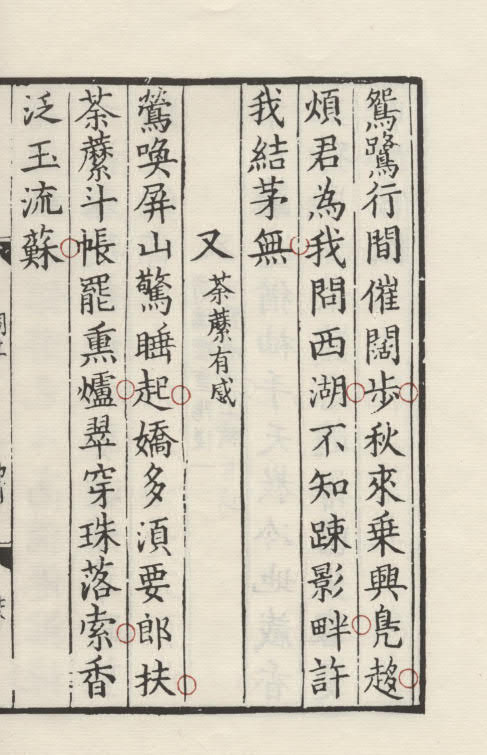 鴛鷺行間催闊歩秋來乗興鳬趍
煩君為我問西湖不知踈影畔許
我結茅無
又荼蘼有感
鶯喚屏山驚睡起嬌多湏要郎扶
荼蘼斗帳罷熏爐翠穿珠落索香
泛玉流蘇